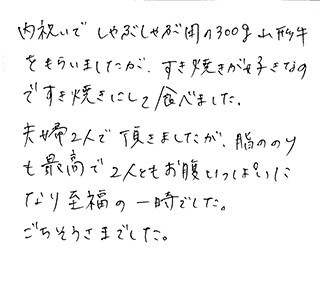 内祝いでしゃぶしゃぶ用の300g山形牛
をもらいましたが、すき焼きが好きなの
ですき焼きにして食べました。
夫婦2人で頂きましたが、脂ののり
も最高で2人ともお腹いっぱいに
なり至福の一時でした。
ごちそうさまでした。